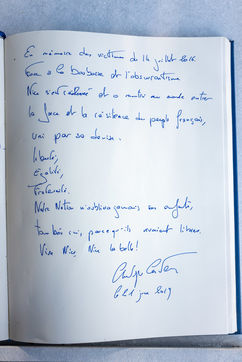 En mémoire des victimes du 14 juillet 2016
Face à la barbarie et l'obscurantisme
Nice s'est relevée et a montré au monde entier
la force et la résilience du peuple français,
uni par sa devise.
Liberté,
Égalité,
Fraternité.
Notre Nation n'oubliera jamais ses enfants,
tombés ici, parce qu'ils vivaient libres.
Vive Nice, Nice la belle!
le 21 juin 2019